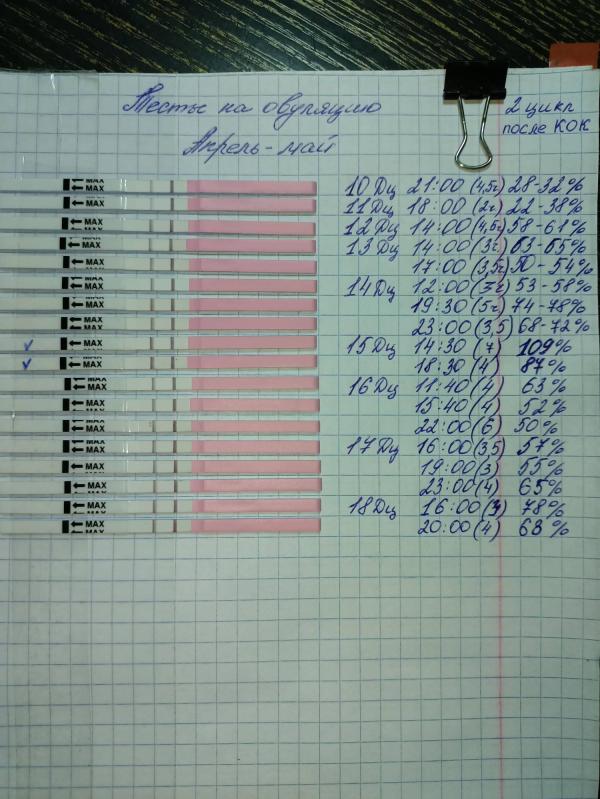 Тесты на овуляцию
2 цикл
после КОК
Апрель-май
← MAX 10 Дц 21:00 (4,5ч) 28-32%
← MAX 11 Дц 18:00 (2ч) 22-38%
← MAX 12 Дц 14:00 (4,5ч) 58-61%
← MAX 13 Дц 14:00 (3ч) 63-65%
← MAX 17:00 (3,5ч) 50-54%
← MAX 14 Дц 12:00 53-58%
← MAX 19:30 (5ч) 74-78%
← MAX 23:00 (3,5) 68-72%
← MAX 15 Дц 14:30 (7) 109%
← MAX 18:30 (4) 87%
← MAX 16 Дц 11:40 (4) 63%
← MAX 15:40 (4) 52%
← MAX 22:00 (6) 50%
← MAX 17 Дц 16:00 (3,5) 57%
← MAX 19:00 (3) 55%
← MAX 23:00 (4) 65%
← MAX 18 Дц 16:00 78%
← MAX 20:00 (4) 68%